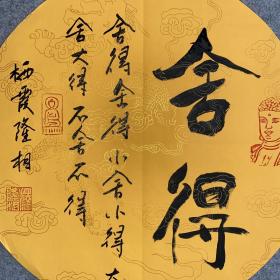 舍得
舍得舍得小舍小得大
舍大得不舍不得
栖霞隆相